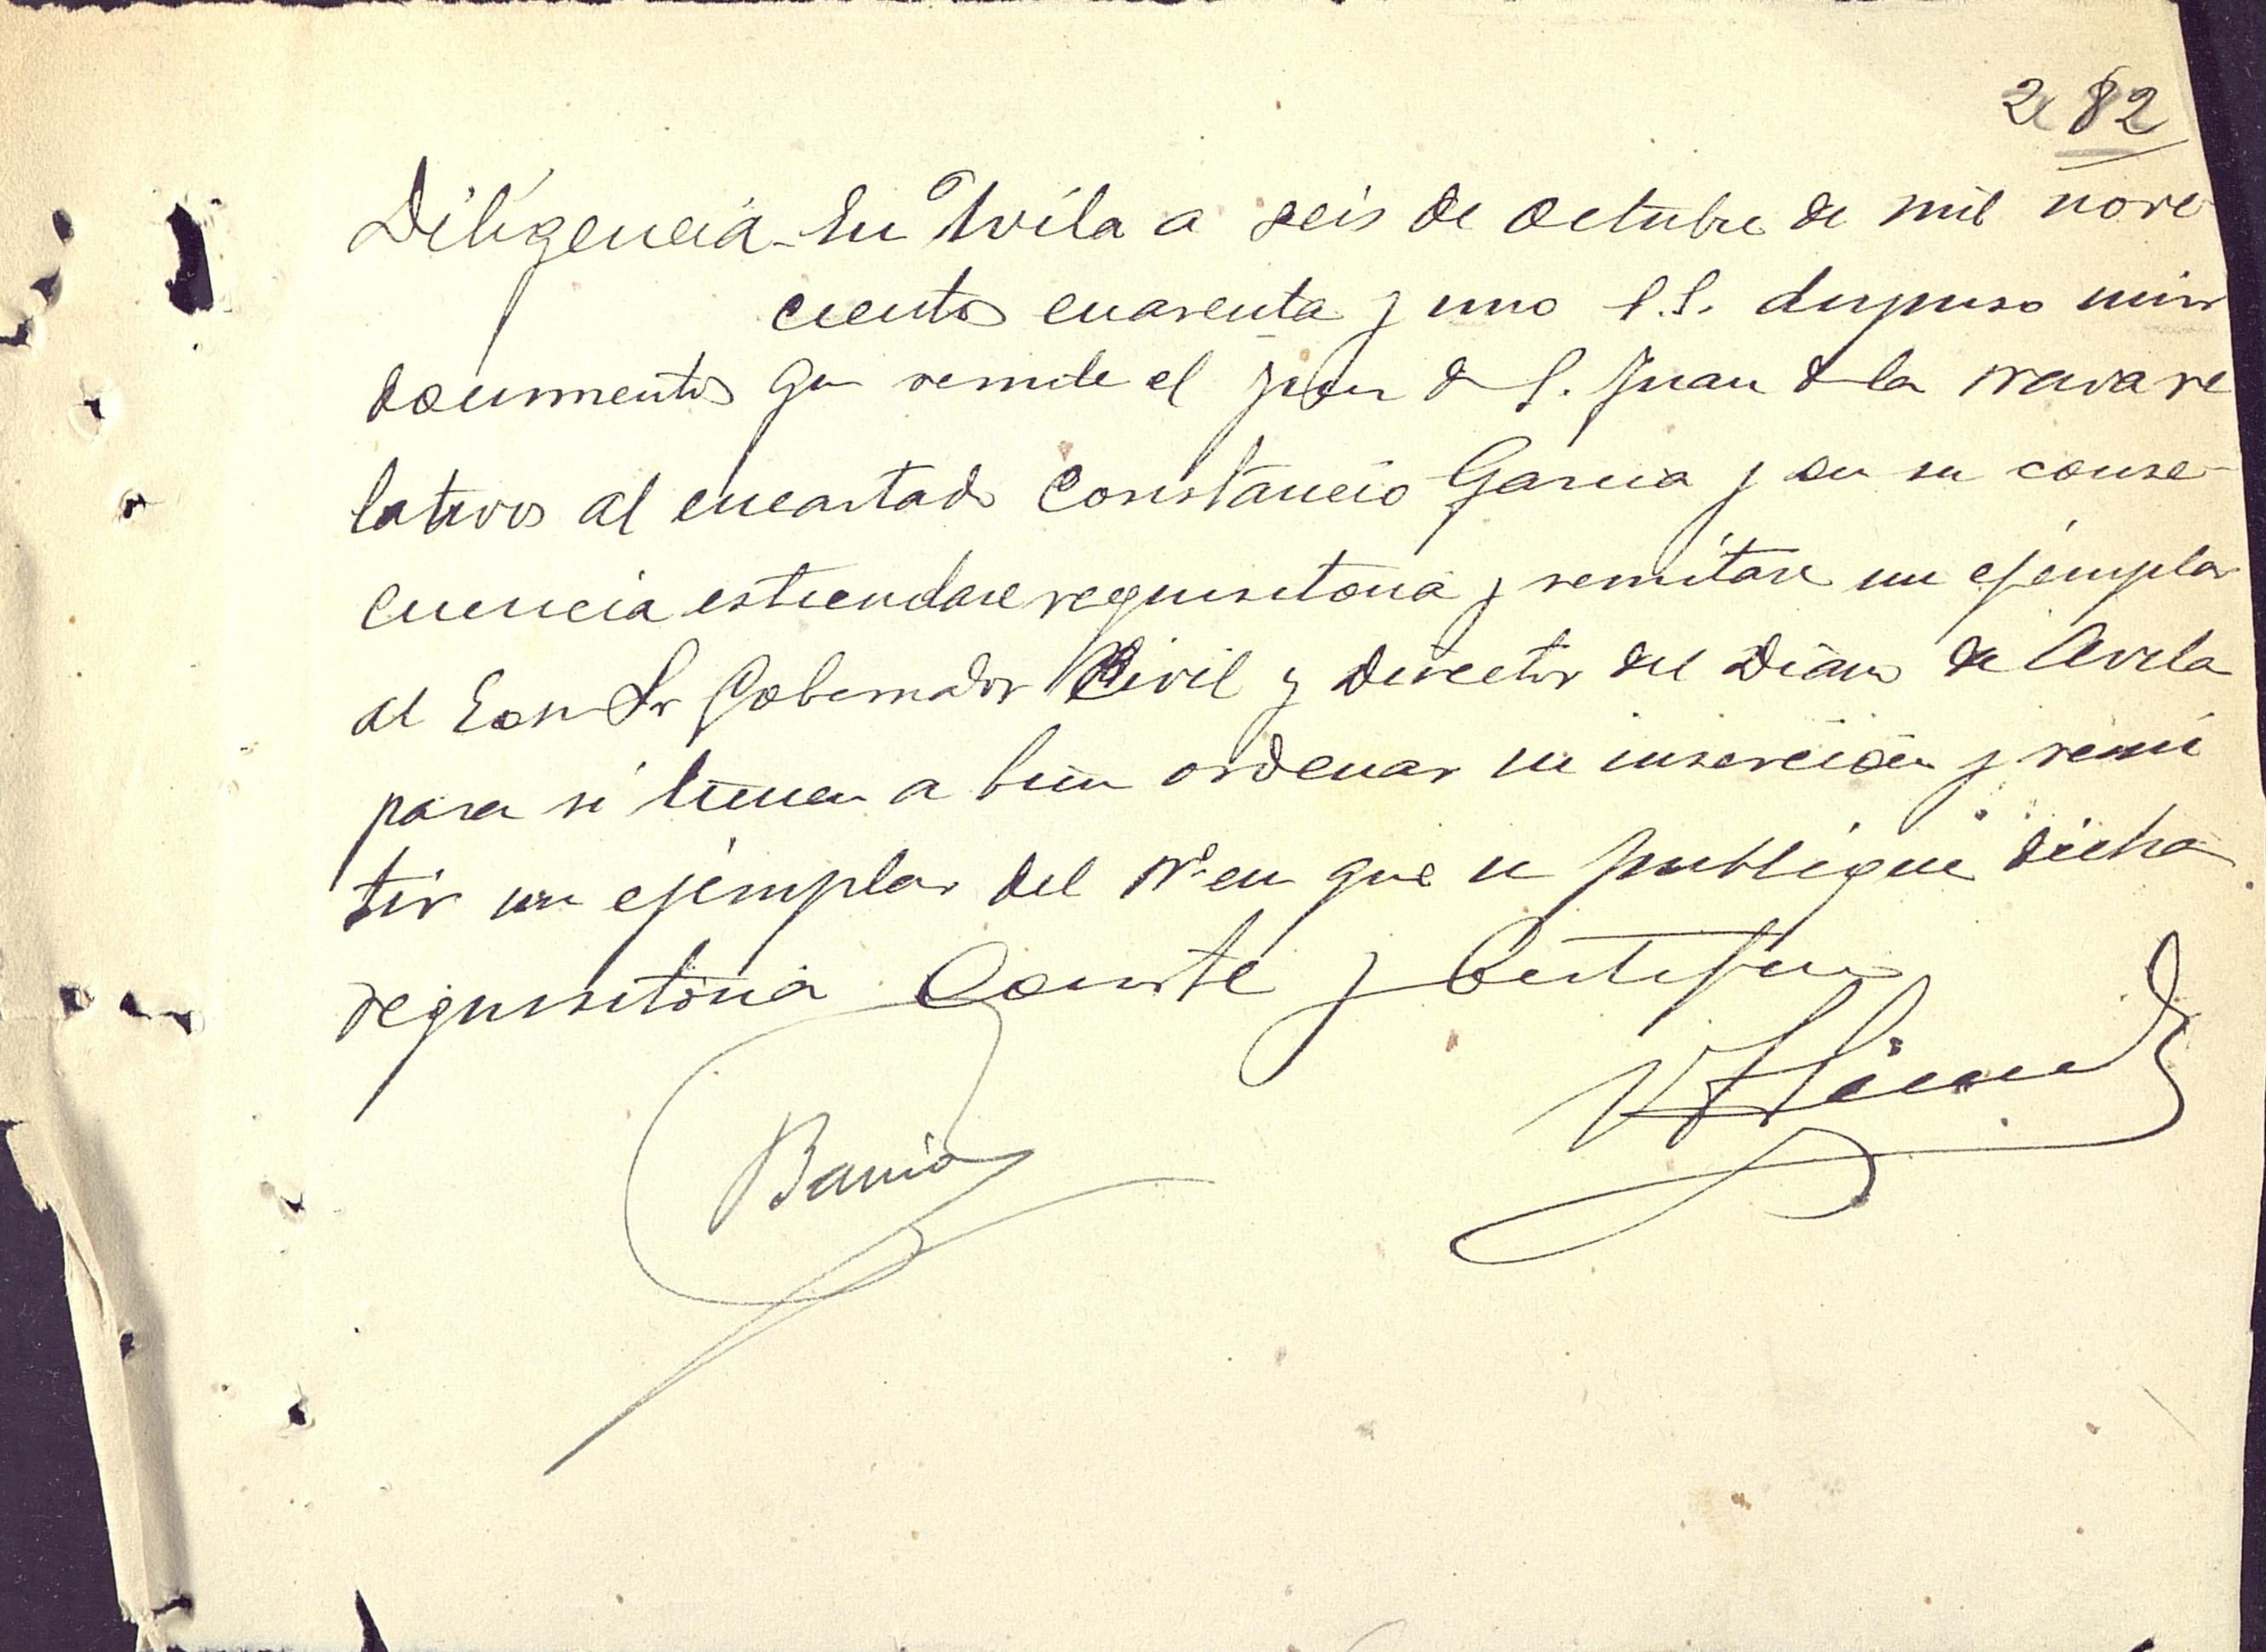 2 82
Diligencia - En Avila a seis de octubre de mil nove-
cientos cuarenta y uno S.S. dispuso unir
documentos que remite el juez de S. Juan de la Nava re
lativos al encartado Constancio Garcia y en su conse-
cuencia estiendase requisitoria y remitase un ejemplar
al Sr Gobernador Civil y Director del Diario de Avila
para si tienen a bien ordenar su inserción y remi
tir un ejemplar del Nº en que se publique dicha
requisitoria Conste y Certifico